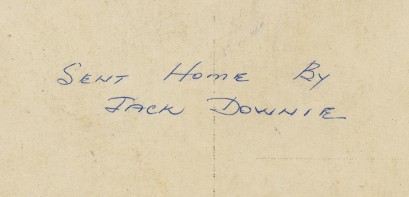 Sent Home By
Jack Downie